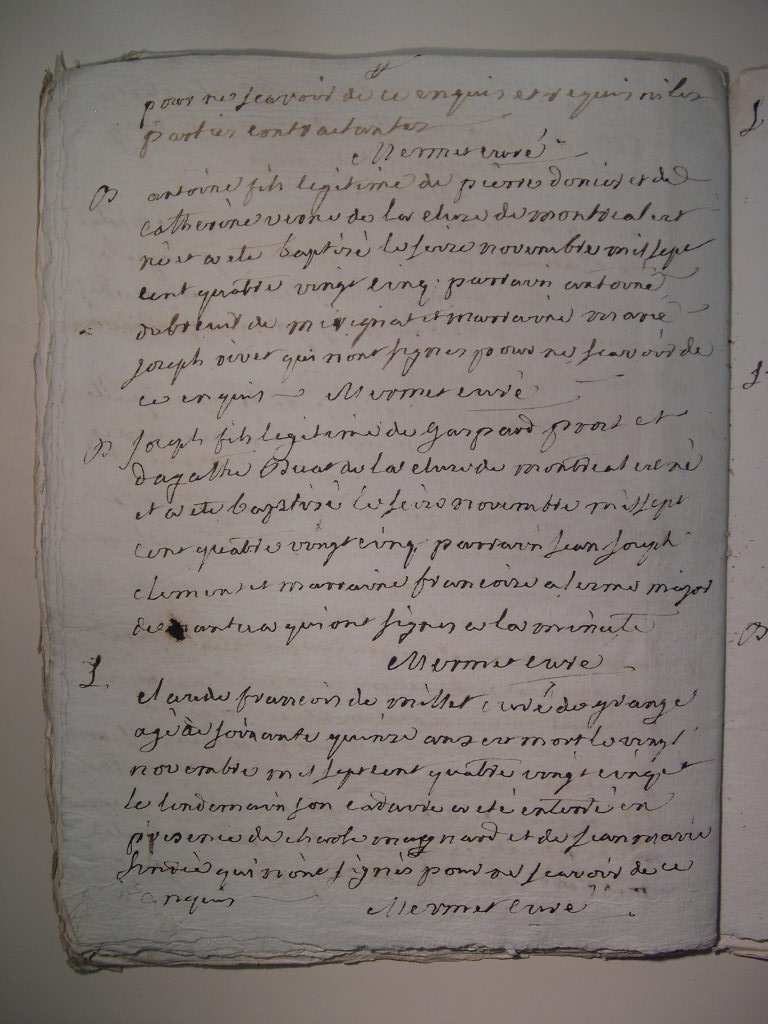 pour ne scavoir de ce enquis et requis ni les
parties contractantes
Mermet curé
B antoine fils legitime de pierre donier et de
Catherine verne de la cluse de montreal est
né et a ete baptisé le seize novembre mil sept
cent quatre vingt cinq. parrain antoine
dubreuil de merignat et marraine marie
joseph rivet qui n'ont signes pour ne scavoir de
ce enquis Mermet curé
B Joseph fils legitime de Gaspard prost et
d'agathe de la cluse de montreal est né
et a ete baptisé le seize novembre mil sept
cent quatre vingt cinq, parrain jean joseph
clement et marraine francoise major
de nantua qui ont signes a la minute
Mermet curé
S. claude francois de millet curé de grange
agé de soixante quinze ans est mort le vingt
novembre mil sept cent quatre vingt cinq et
le lendemain son cadavre a eté enterré en
presence de charle magnard et de jean marie
qui n'ont signés pour ne scavoir de ce
enquis Mermet curé